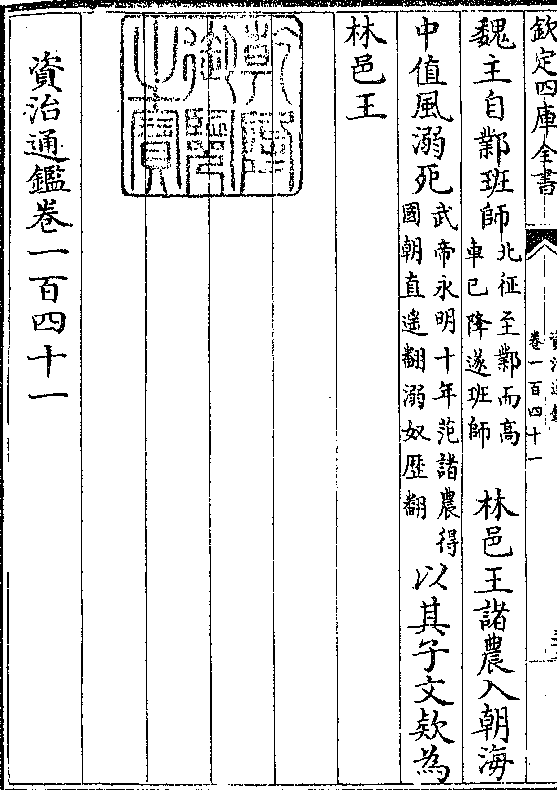 欽定四庫全書
資治通鑑
卷一百四十一
魏主自鄴班師北征至鄴而高車已降遂班師 林邑王諸農入朝海
中值風溺死武帝永明十年范諸農得國朝直遥翻溺奴歴翻以其子文欵為
林邑王
乾隆御覽之寶
資治通鑑卷一百四十一